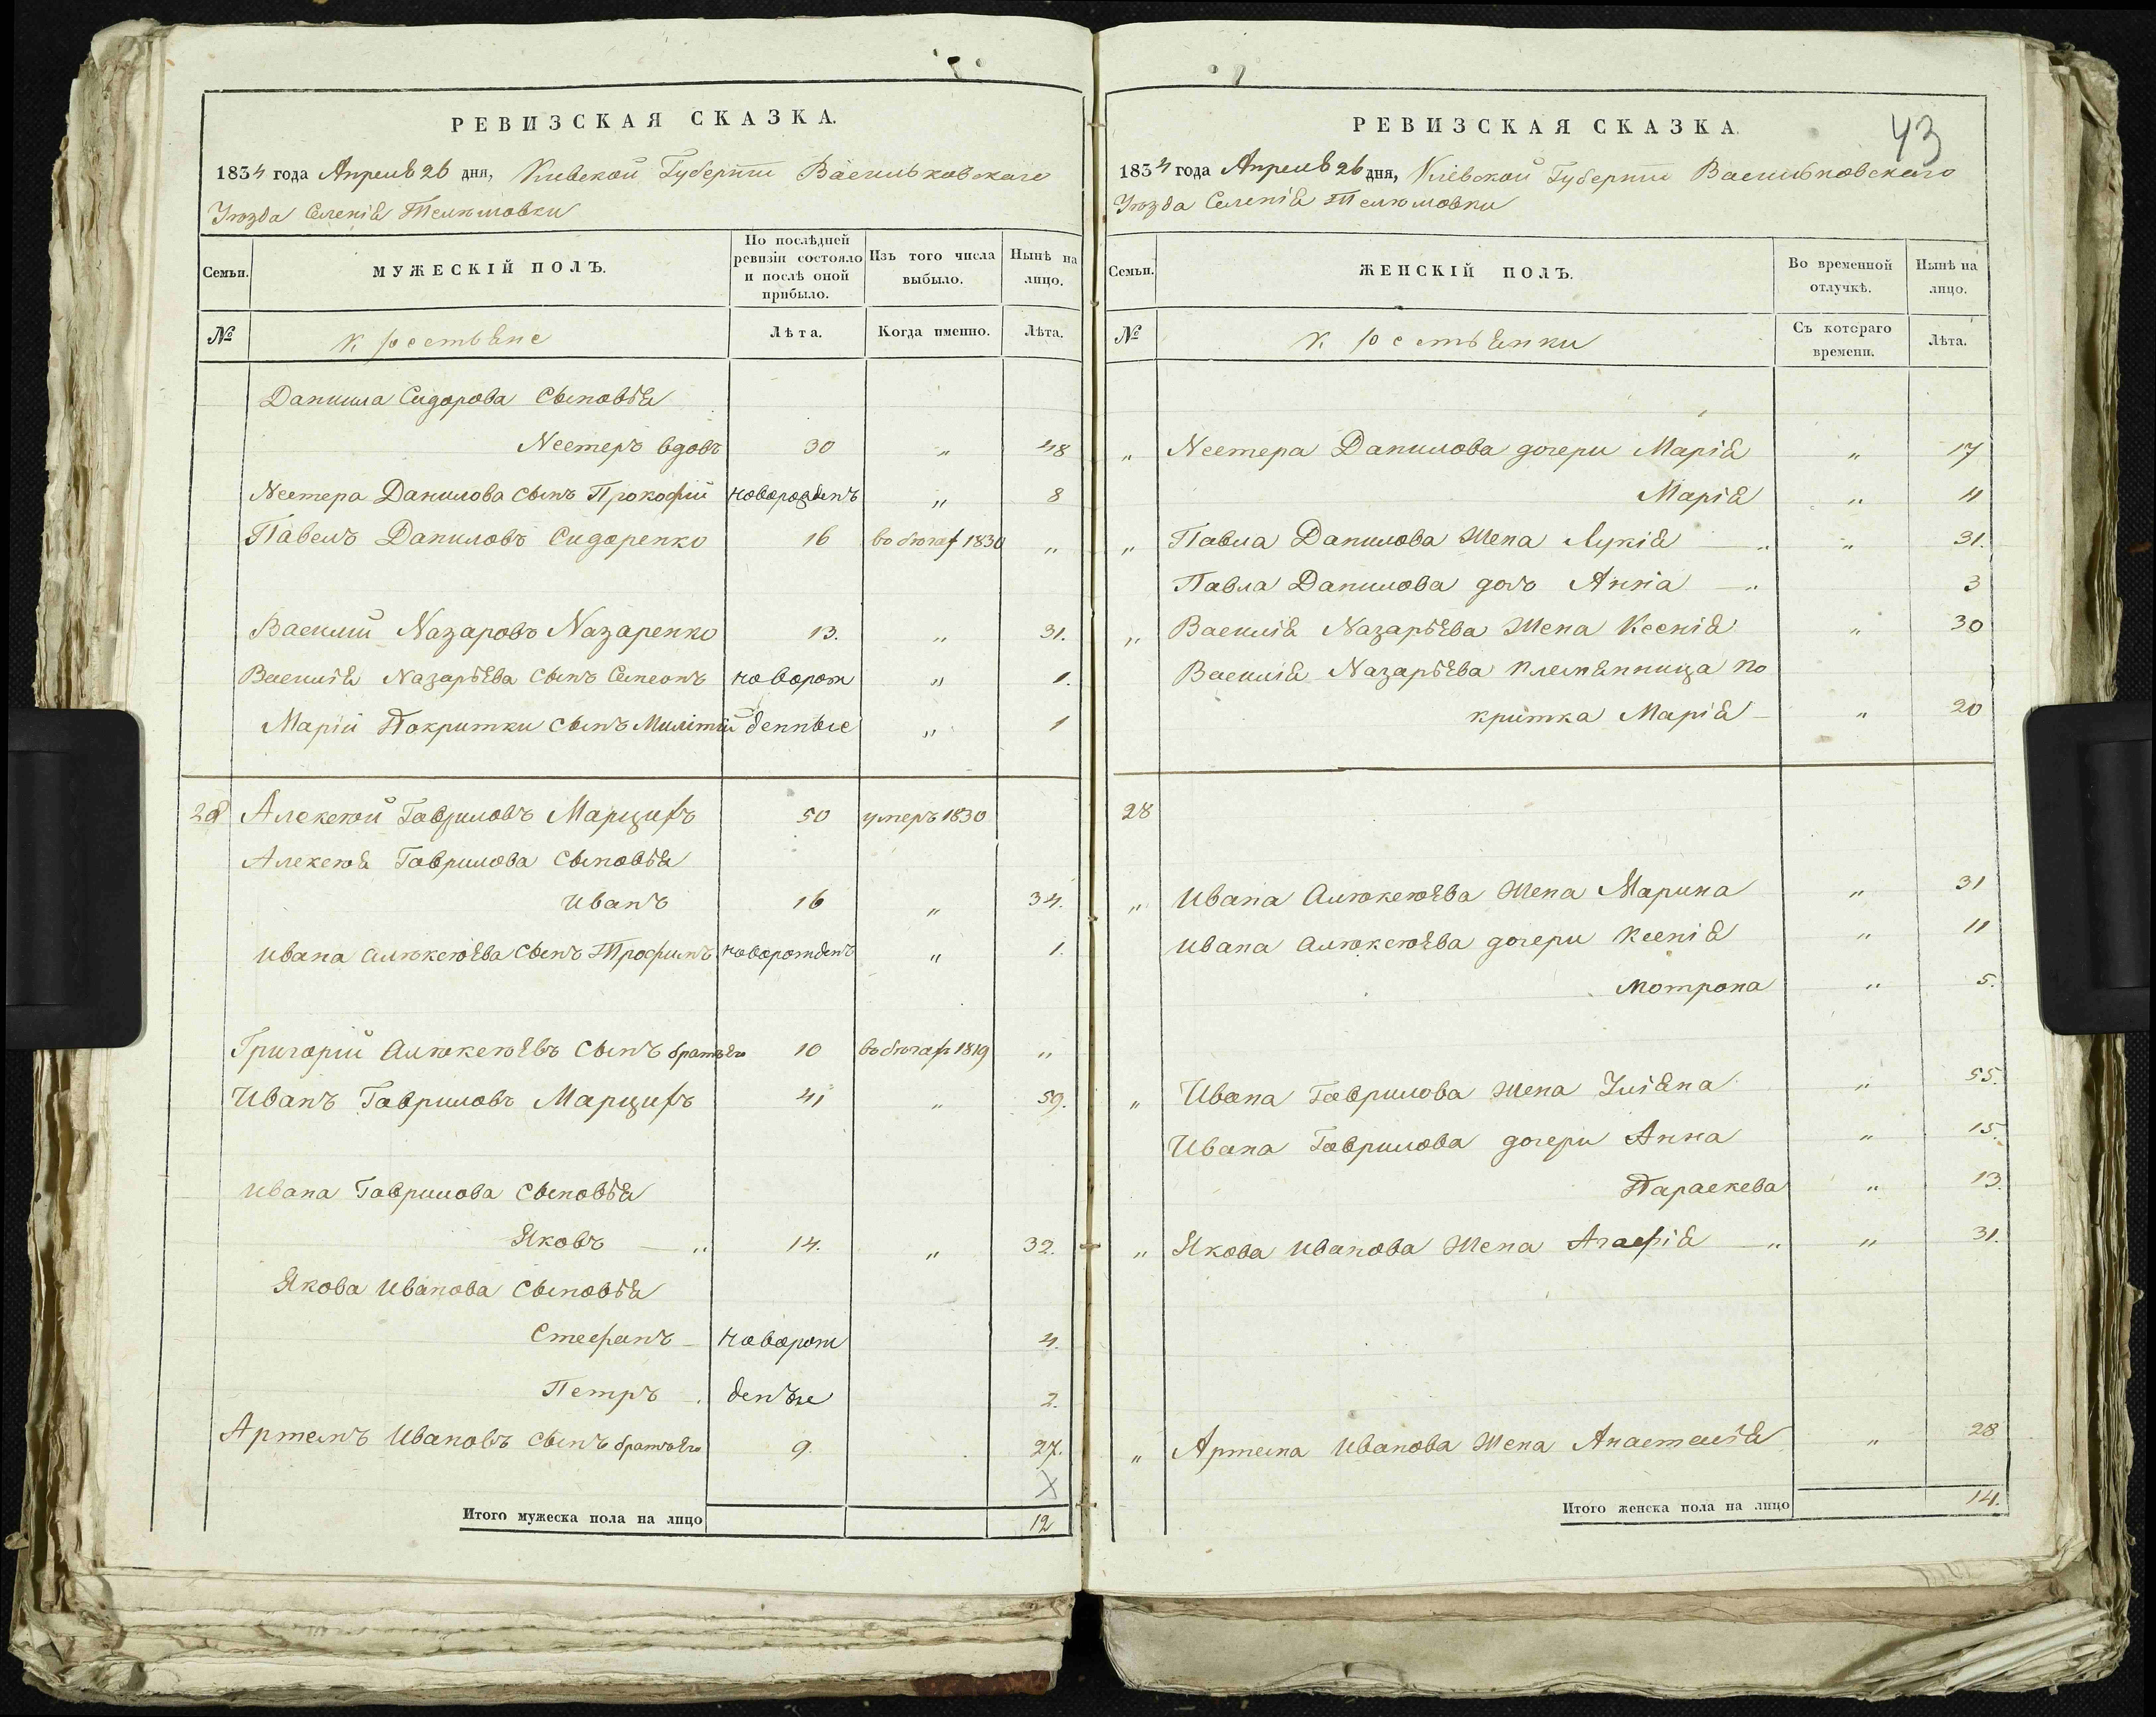 РЕВИЗСКАЯ СКАЗКА.
1834 года Апреля 26 дня, Киевской Губернiи Васильковскаго
Уѣзда Селенiя Телѣмовки
Семьи.
МУЖЕСКІЙ ПОЛЪ.
По послѣдней ревизіи состояло и послѣ оной прибыло.
Изъ того числа выбыло.
Нынѣ на лицо.
№
крестьяне
Лѣта.
Когда именно.
Лѣта.
Данiила Сидорова сыновья
Нестеръ вдовъ 30 „ 48
Нестера Данилова сынъ Прокофий новорожденъ „ 8
Павелъ Даниловъ Сидоренко 16 въ бѣгаф 1830 „
Василий Назаровъ Назаренко 13. „ 31.
Василiя Назарьева сынъ Семеонъ новорож „ 1.
Марiи Покритки сынъ Милiтiй денные „ 1
28 Алексѣй Гавриловъ Марциф 50 умеръ 1830
Алексѣя Гаврилова сыновья
Иванъ 16 „ 34.
Ивана Алѣксѣева сынъ Трофимъ новорожденъ „ 1.
Григорiй Алѣксѣевъ сынъ братъ его 10 въ бѣгаф 1819 „
Иванъ Гавриловъ Марциф 41 „ 59.
Ивана Гаврилова сыновья
Яковъ — „ 14. „ 32.
Якова Иванова сыновья
Стефанъ — новорож 4.
Петръ . денъе 2.
Артемъ Ивановъ сынъ братъ его 9. 27.
X
Итого мужеска пола на лицо 12
РЕВИЗСКАЯ СКАЗКА.
43
1834 года Апреля 26 дня, Кіевской Губернiи Васильковскаго
Уѣзда Селенiя Телѣмовки
Семьи.
ЖЕНСКІЙ ПОЛЪ.
Во временной отлучкѣ.
Нынѣ на лицо.
№
крестьянки
Съ котораго времени.
Лѣта.
„ Нестера Данилова дочери Марiя „ 17
Марiя „ 11
„ Павла Данилова жена Лукiя — „ „ 31.
Павла Данилова дочь Анна — „ 3
„ Василiя Назарьева жена Ксенiя „ 30
Василiя Назарьева племянница По
критка Марiя — „ 20
28
„ Ивана Алѣксѣева жена Марина „ 31
Ивана Алѣксѣева дочери Ксенiя „ 11
Мотрона „ 5.
„ Ивана Гаврилова жена Улiяна „ 55.
Ивана Гаврилова дочери Анна „ 15.
Параскева „ 13.
„ Якова Иванова жена Агафiя — „ „ 31.
„ Артема Иванова жена Анастасiя „ 28
Итого женска пола на лицо 14.